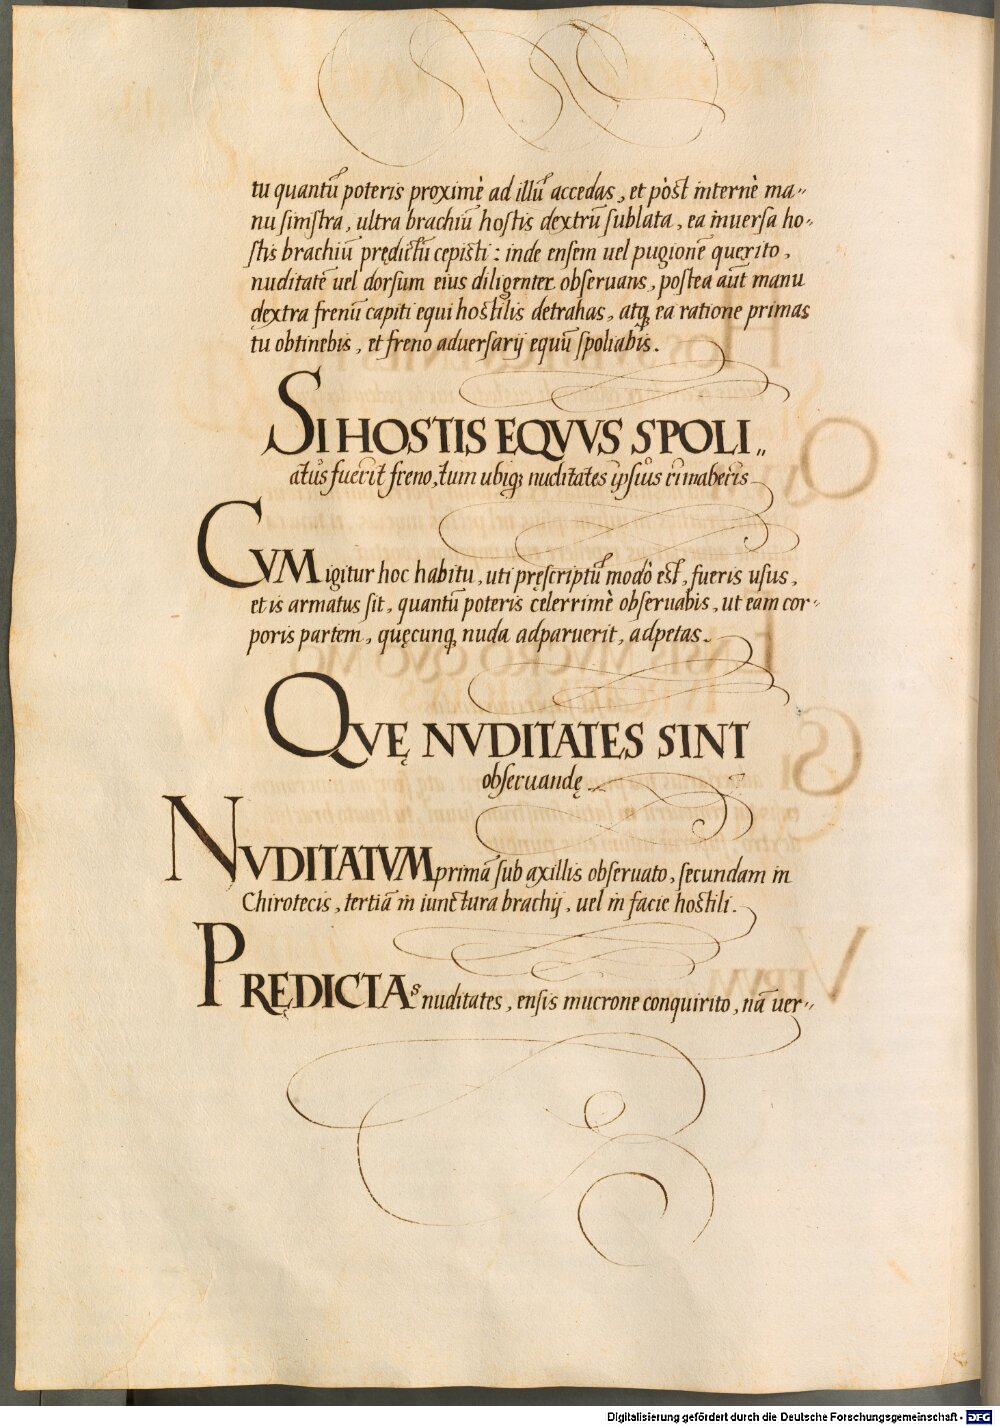 tu quantū poteris proximè ad illū accedas, et pòst internè ma„
nu sinistra, ultra brachiū hostis dextrū sublata, ea inuersa ho„
stis brachiū prędictū cepisti: inde ensem uel pugionē querito,
nuditatē uel dorsum eius diligenter obseruans, postea aūt manu
dextra frenū capiti equi hostilis detrahas, atq; ea ratione primas
tu obtinebis, et freno aduersarij equū spoliabis.
SI HOSTIS EQVVS SPOLI„
atus fuerit freno, tum ubiq; nuditates ipsius rimaberis
CVM igitur hoc habitu, uti pręscriptū modò est, fueris usus,
et is armatus sit, quantū poteris celerrimè obseruabis, ut eam cor„
poris partem, quęcunq; nuda adparuerit, adpetas.
QVĘ NVDITATES SINT
obseruandę
NVDITATVM primā sub axillis obseruato, secundam in
Chirotecis, tertiā in iunctura brachij, uel in facie hostili.
PRĘDICTAs nuditates, ensis mucrone conquirito, nā uer„
Digitalisierung gefördert durch die Deutsche Forschungsgemeinschaft - DFG